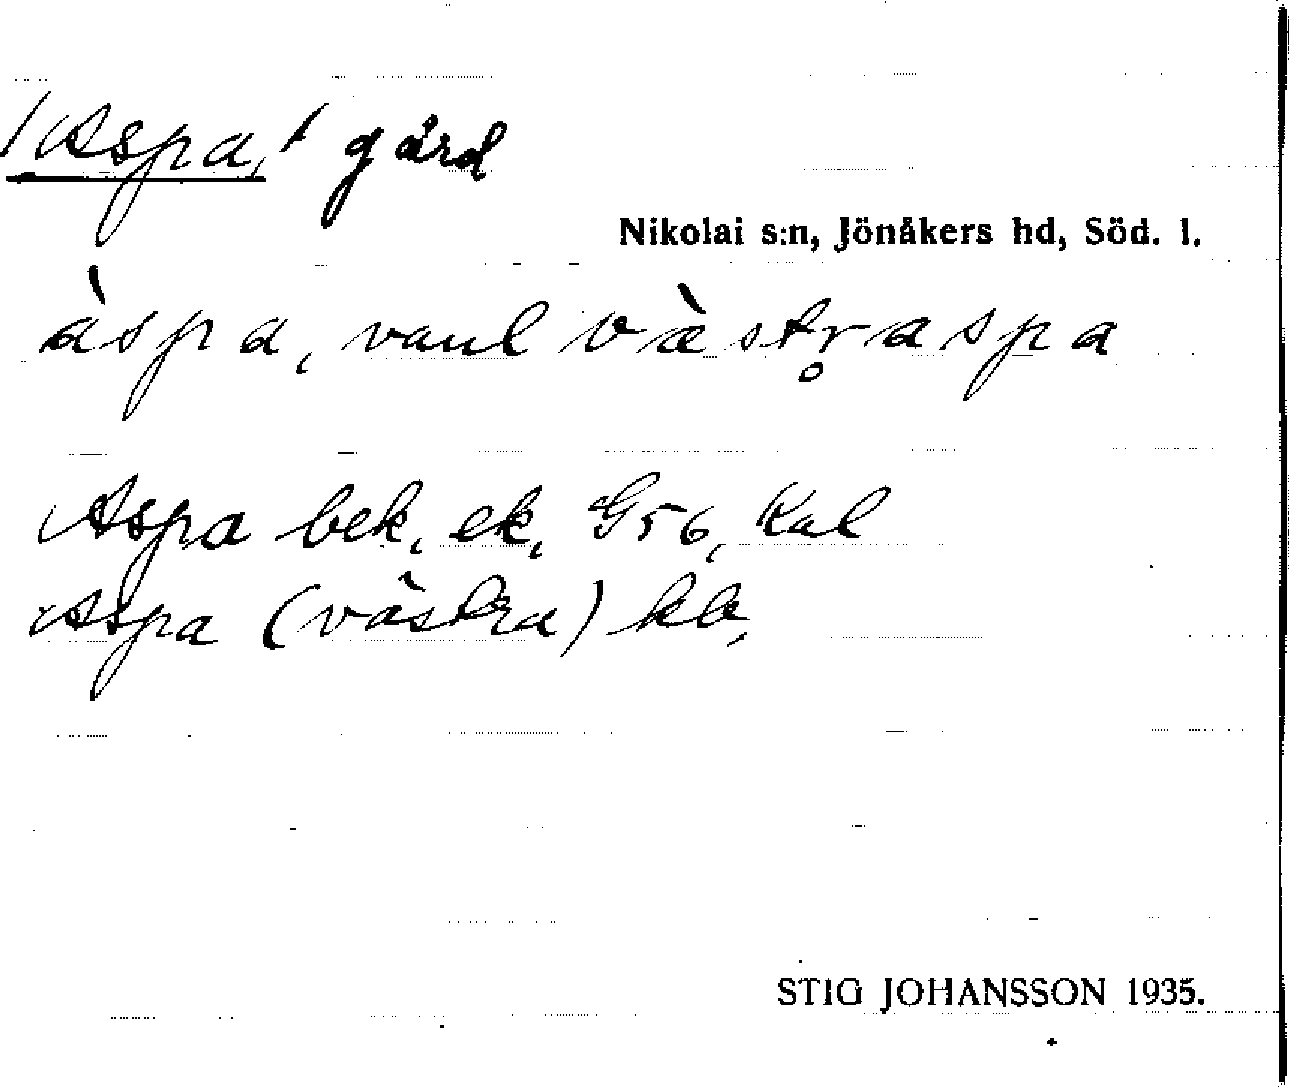 /Aspa,/ gård
Nikolai s:n, Jönåkers hd, Söd. l.
àspa, vanl væ̀str̥aspa
Aspa bek, ek, G56, Kal
Aspa (västra) kb,
STIG JOHANSSON 1935.